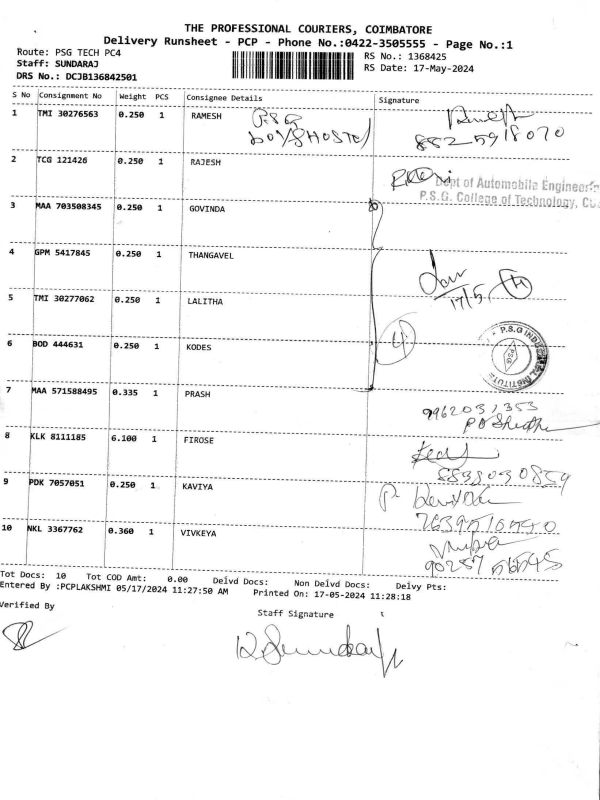 THE PROFESSIONAL COURIERS, COIMBATORE
Delivery Runsheet - PCP - Phone No.:0422-3505555 - Page No.:1
Route: PSG TECH PC4
Staff: SUNDARAJ
DRS No.: DCJB136842501
RS No.: 1368425
RS Date: 17-May-2024
S No Consignment No Weight PCS Consignee Details Signature
1 TMI 30276563 0.250 1 RAMESH PSG
BOYS HOSTEL 8825918070
2 TCG 121426 0.250 1 RAJESH
Dept of Automobile Engineering
P.S.G. College of Technology,
3 MAA 703508345 0.250 1 GOVINDA
4 GPM 5417845 0.250 1 THANGAVEL
17/5
5 TMI 30277062 0.250 1 LALITHA
6 BOD 444631 0.250 1 KODES 4
P.S.G INDUSTRIAL INSTITUTE
PSG
7 MAA 571588495 0.335 1 PRASH
9962031353
8 KLK 8111185 6.100 1 FIROSE
8838030859
9 PDK 7057051 0.250 1 KAVIYA
7639510540
10 NKL 3367762 0.360 1 VIVKEYA
Tot Docs: 10 Tot COD Amt: 0.00 Delvd Docs: Non Delvd Docs: Delvy Pts:
Entered By :PCPLAKSHMI 05/17/2024 11:27:50 AM Printed On: 17-05-2024 11:28:18
Verified By
Staff Signature